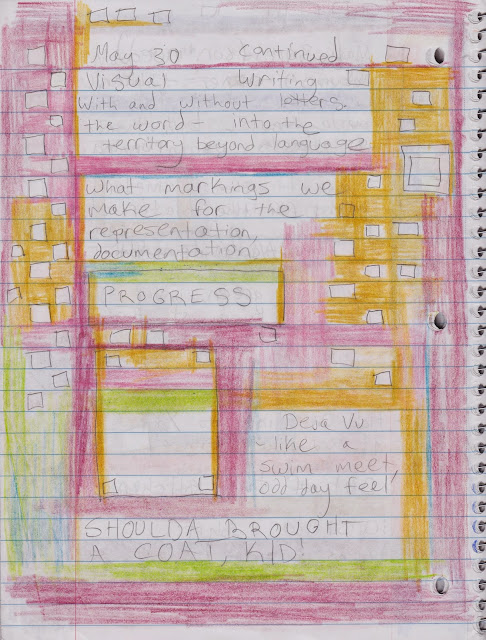 May 30 continued
Visual Writing
With and without letters.
the world - into the
territory beyond language
What markings we
make for the
representation,
documentation,
PROGRESS
Deja Vu
like a
swim meet,
odd day feel
SHOULDA BROUGHT
A COAT, KID!